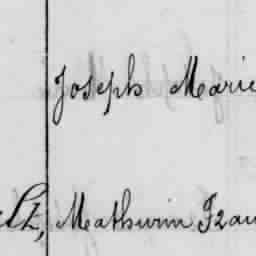 Joseph Marie
lt, Mathurin Fran